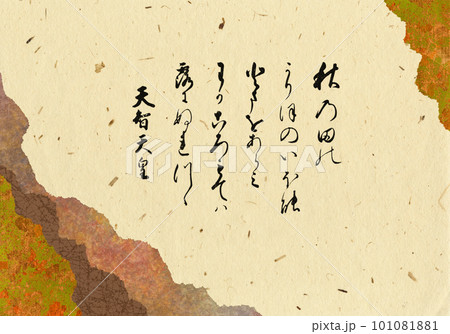 秋乃田の
かりほのいほ能
とまをあらみ
わかころもてハ
露にぬれつゝ
天智天皇
PIXTA
pixta.jp - 101081881